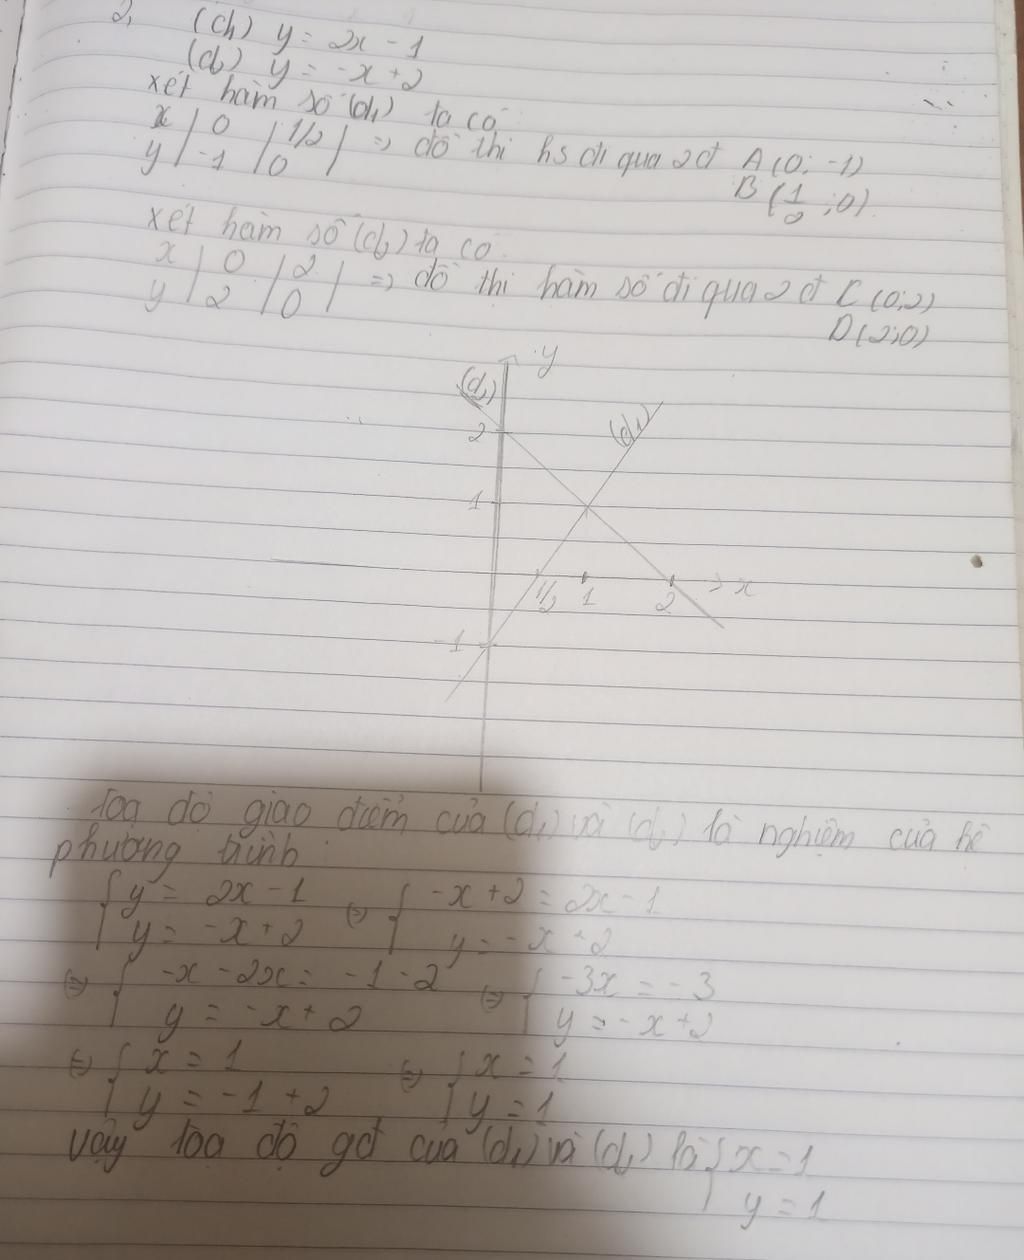 2, (d1) y = 2x - 1
(d2) y = -x + 2
xét hàm số (d1) ta có
x | 0 | 1/2 |
y | -1 | 0 | => đồ thị hs đi qua 2đ A(0; -1)
B(1/2; 0)
xét hàm số (d2) ta có
x | 0 | 2 |
y | 2 | 0 | => đồ thị hàm số đi qua 2 đ C(0;2)
D(2;0)
y
(d2)
(d1)
2
1
1/2 1 2 x
-1
Toạ độ giao điểm của (d1) và (d2) là nghiệm của hệ
phương trình
{ y = 2x - 1 (=) { -x + 2 = 2x - 1
y = -x + 2 y = -x + 2
(=) { -x - 2x = -1 - 2 (=) { -3x = -3
y = -x + 2 y = -x + 2
(=) { x = 1 (=) { x = 1
y = -1 + 2 y = 1
vậy tọa độ gđ của (d1) và (d2) là { x = 1
y = 1